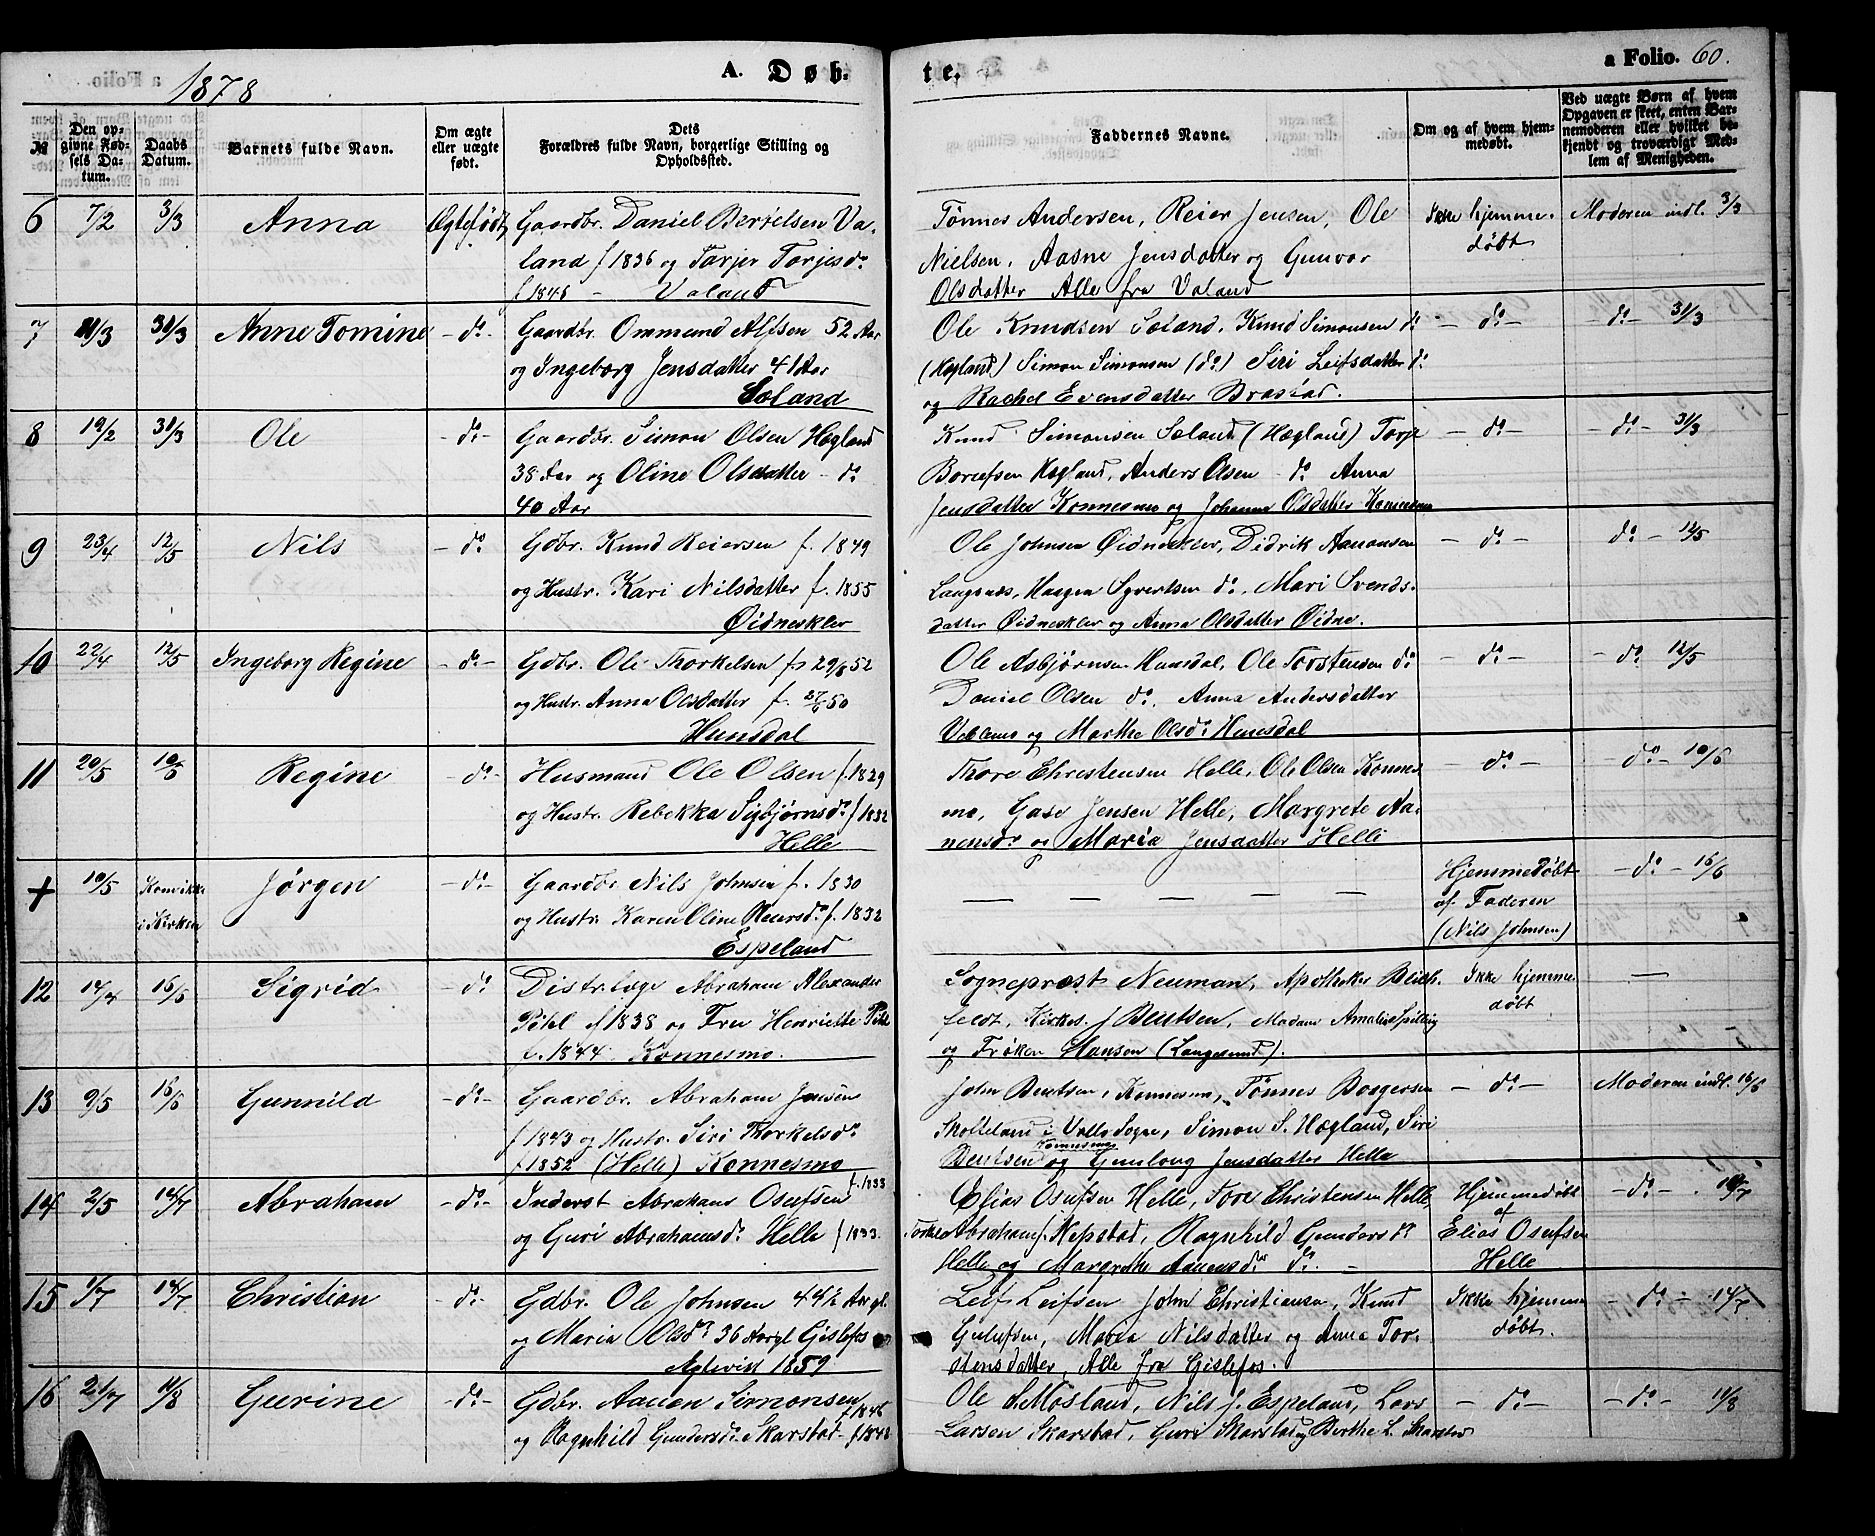 1878
A. Døb-
te.
a Folio. 60.
№
Den opgivne Fødsels Datum.
Daabs Datum.
Barnets fulde Navn.
Om ægte eller uægte født.
Dets Forældres fulde Navn, borgerlige Stilling og Opholdssted.
Faddernes Navne.
Om og af hvem hjemmedøbt.
Ved uægte Børn af hvem Opgaven er skeet, enten Barnemoderen eller hvilket bekjendt og troværdigt Medlem af Menigheden.
6 7/2 3/3 Anna Ægtefødt
Gaardbr. Daniel Bertelsen Va-
land f 1836 og Tarjer Torjesd.
f 1846 - Valand
Tønnes Andersen, Reier Jensen, Ole
Nielsen, Aasne Jensdatter og Gunvor
Olsdatter Alle fra Valand
Ikke hjemme-
døbt
Moderen indl. 3/3
7 31/3 Anne Tomine - do -
Gaardbr. Ommund Alfsen 52 Aar
og Ingeborg Jensdatter 41 Aar
Soland
Ole Knudsen Soland, Knud Simonsen do
(Høgland) Simon Simonsen (do) Siri Leifsdatter do
og Rachel Evensdatter Brastad.
- do -
- do - 31/3
8 19/2 31/3 Ole - do -
Gaardbr. Simon Olsen Høgland
38 Aar og Oline Olsdatter - do
40 Aar
Knud Simonsen Soland (Høgland) Torje
Høgland, Anders Olsen - do Anna
Jensdatter Konnesmo og Johanne Olsdatter Konnesmo
- do -
- do - 31/3
9 23/4 12/5 Nils - do.
Gdbr. Knud Reiersen f. 1849
og Hustr. Kari Nilsdatter f. 1855
Øidneskler
Ole Johnsen Øidneskler, Didrik Aanonsen
Langnæs, Haagen Syvertsen do, Mari Svends-
datter Øidneskler og Anna Olsdatter Øidne.
- do -
do - 12/5
10 22/4 12/5 Ingeborg Regine - do -
Gdbr. Ole Thorkelsen f 29/8 52
og Hustr. Anna Olsdatter f. 50
Hunsdal
Ole Asbjørnsen Hunsdal, Ole Torstensen do
Daniel Olsen do. Anna Andersdatter
og Marthe Olsd. Hunsdal
- do -
- do 12/5
11 20/5 10/6 Regine - do -
Husmand Ole Olsen f. 1829
og Hustr. Rebekka Sigbjørnsd. f 1832
Helle
Thore Christensen Helle, Ole Olsen Konnes-
mo, Jensen Helle, Margrete Aa-
nensd. og Maria Jensdatter Helle
- do -
- do - 10/6
+ 10/5 Kom ikke Jørgen - do -
i Kirken
Gaardbr. Nils Johnsen f. 1830
og Hustr. Karen Oline Reiersd. f. 1832
Espeland
— — — —
Hjemmedøbt
af Faderen
(Nils Johnsen)
- do - 16/6
12 16/6 Sigrid - do
Distr. læge Abraham Alexander
Pihl f 1838 og Fru Henriette Pihl
f. 1844 Konnesmo.
Sogneprest Neuman, Apotheker
feldt, Kirkes. J Bentsen, Madam Amalie
og Frøken Hansen (Langesund).
Ikke hjemme
døbt
—
13 9/5 16/6 Gunnild - do -
Gaardbr. Abraham Jensen
f 1843 og Hustr. Siri Thorkelsd.
f 1852 (Helle) Konnesmo
John Bentsen, Konnesmo, Tønnes Borgersen
i Valle Sogn, Simon S. Høgland, Siri
Konnesmo
Bentsen og Gunloug Jensdatter Helle
- do -
Moderen indl. 16/6
14 2/5 14/7 Abraham - do -
Inderst Abraham Osufsen f. 1833
og Guri Abrahamsd. Helle f 1833.
Elias Osufsen Helle, Tore Christensen Helle,
Abrahamf. Nepstad, Ragnhild Gundersd.
Helle og Margrethe Aanensd. do. -
Hjemmedøbt
af
Elias Osufsen
Helle
- do - 14/7
15 1/7 14/7 Christian - do -
Gdbr. Ole Johnsen 44½ Aar gl.
og Maria Olsd. 36 Aar gl Gislefos
Ægtevid 1859
Leif Leifsen John Christiansen, Knud
Gulufsen, Maria Nilsdatter og Anna Tor-
stensdatter, Alle fra Gislefos.
Ikke hjemme
døbt.
- do - 14/7
16 21/7 11/8 Gurine - do -
Gdbr. Aanen Simonsen f. 1846
og Ragnhild Gundersd. Skarstad - f 1848
Ole Mosland, Nils J. Espeland, Lars
Larsen Skarstad, Guri Skarstad og Berthe L. Skarstad
- do -
- do - 11/8